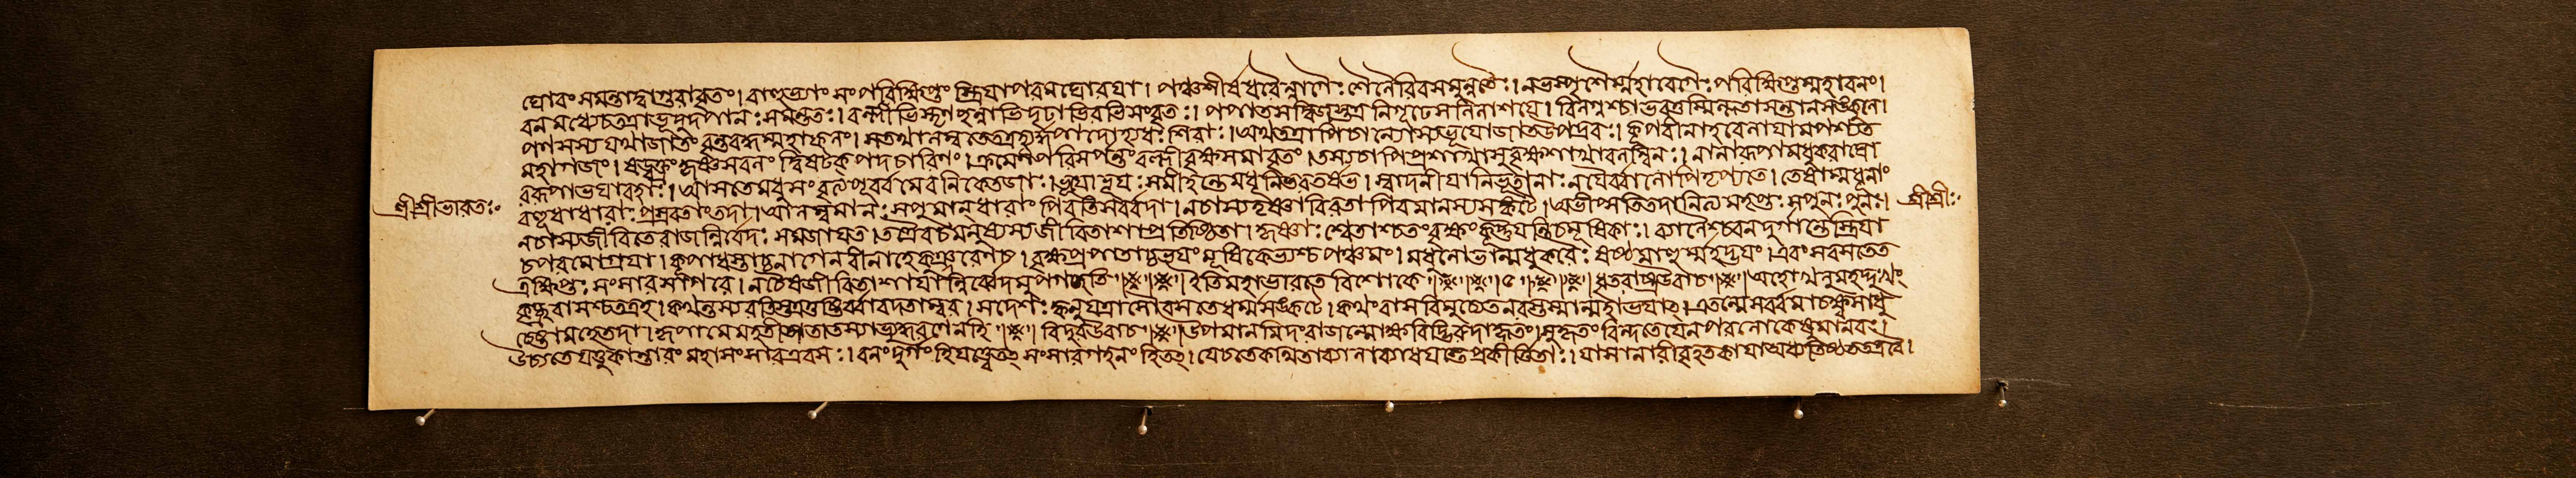 ঘোরং সমন্তাদ্বাগুরাবৃতং। বাহুভ্যাং সংপরিক্ষিপ্তং স্ত্রিয়াপরমঘোরয়া। পঞ্চশীর্ষধরৈর্ন্নাগৈঃ শৈলৈরিবসমুন্নতৈঃ। নভস্পৃশৈর্ম্মহাবেগৈঃ পরিক্ষিপ্তম্মহাবনং।
বনমধ্যেচতত্রাভূদুদপানঃ সমন্ততঃ। বল্লীভিস্তৃণছন্নাভিদৃঢাভিরভিসংবৃতঃ। পপাতসদ্বিজস্তত্র নিগূঢেসলিলাশয়ে। বিলগ্নশ্চাভবত্তস্মিন্লতাসন্তানসঙ্কুলে।
পণসস্য যথাজাতং বৃন্তবদ্ধম্মহাফলং। সতথালম্বতেতত্রহ্যূর্দ্ধপাদোহ্যধঃ শিরাঃ। অথতত্রাপিচান্যোস্যভূয়োজাতউপদ্রবঃ। কূপবীনাহবেলায়ামপশ্যত
মহাগজং। ষড়্বক্ত্রং কৃষ্ণশবলং দ্বিষট্কপদচারিণং। ক্রমেণপরিসর্পন্তং বল্লীবৃক্ষসমাবৃতং। তস্যচাপিপ্রশাখাসুবৃক্ষশাখাবলম্বিনঃ। নানারূপামধুকরাঘো
ররূপাভয়াবহাঃ। আসতেমধুসংবৃত্যপূর্ব্বমেবনিকেতজাঃ। ভূয়োভূয়ঃ সমীহন্তেমধূনিভরতর্ষভ। স্বাদনীয়ানিভূতানাং নযৈর্ব্বালোপিতৃপ্যতে। তেষাম্মধূনাং
শ্রীশ্রীভারতঃ
বহুধাধারাঃ প্রস্রবতাংতদা। আলম্বমানঃ সপুমান্ধারাং পিবতিসর্ব্বদা। নচাস্যতৃষ্ণাবিরতাপিবমানস্যসঙ্কটে। অভীপ্সতিতদানিত্যমতৃপ্তঃ সপুনঃপুনঃ।
শ্রীশ্রীঃ
নচাস্যজীবিতেরাজন্নির্বেদঃ সমজায়ত। তত্রৈবচমনুষ্যস্যজীবিতাশাপ্রতিষ্ঠিতা। কৃষ্ণাঃ শ্বেতাশ্চতংবৃক্ষং কুট্টয়ন্তিচমূষিকাঃ। ব্যালৈশ্চবনদুর্গান্তেস্ত্রিয়া
চপরমোগ্রয়া। কূপাধস্তাচ্চনাগেনবীনাহেকুঞ্জরেণচ। বৃক্ষপ্রপাতাচ্চভয়ং মূষিকেভ্যশ্চপঞ্চমং। মধুলোভান্মধুকরৈঃ ষষ্ঠমাহুর্ম্মহদ্ভয়ং। এবং সবসতেত
ত্রক্ষিপ্তঃ সংসারসাগরে। নচৈবজীবিতাশায়ান্নির্ব্বেদমুপগচ্ছতি॥ ॥ইতিমহাভারতে বিশোকে॥ ॥৫॥ ॥ধৃতরাষ্ট্রউবাচ॥ অহোখলুমহদ্দুঃখং
কৃচ্ছ্রবাসশ্চতত্রহ। কথন্তস্যরতিস্তত্রতুষ্টির্ব্বাবদতাম্বর। সদেশঃ ক্বনুযত্রাসৌবসতেধর্ম্মসঙ্কটে। কথংবাসবিমুচ্যেতনরস্তস্মান্মহাভয়াৎ। এতন্মেসর্ব্বমাচক্ষ্বসাধু
চেষ্টামহেতদা। কৃপামেমহতীজাতাতস্যাভ্যুদ্ধরণেনহি॥ ॥বিদুরউবাচ॥ উপমানমিদংরাজন্মোক্ষবিদ্ভিরুদাহৃতং। সুকৃতং বিন্দতেযেনপরলোকেষুমানবঃ।
উচ্যতেযত্তুকান্তারং মহাসংসারএবসঃ। বনংদুর্গংহিযত্ত্বেতৎ সংসারগহনং হিতৎ। যেচতেকথিতাব্যালাব্যাধয়স্তেপ্রকীর্ত্তিতাঃ। যাসানারীবৃহতকায়াঅধ্যতিষ্ঠততত্রবৈ।